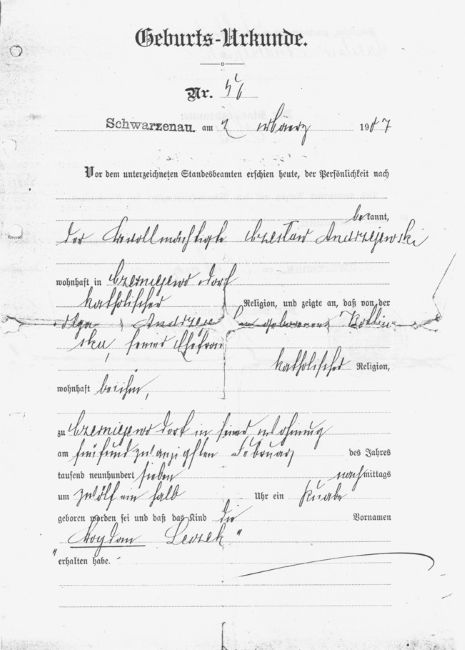 Geburts-Urkunde.
Nr. 56
Schwarzenau am 2 März 1907
Vor dem unterzeichneten Standesbeamten erschien heute, der Persönlichkeit nach
bekannt,
der Bevollmächtigte Czeslaw Andrzejewski
wohnhaft in Czerniejewo Dorf
katholischer
Religion, und zeigte an, daß von der
Olga Andrzejew geborenen
ska, seiner Ehefrau
katholischer Religion,
wohnhaft bei ihm,
zu Czerniejewo Dorf in seiner Wohnung
am fünfundzwanzigsten Februar des Jahres
tausend neunhundert sieben nachmittags
um zwölf ein halb Uhr ein Knabe
geboren worden sei und daß das Kind die Vornamen
„Bogdan Leszek“
erhalten habe.